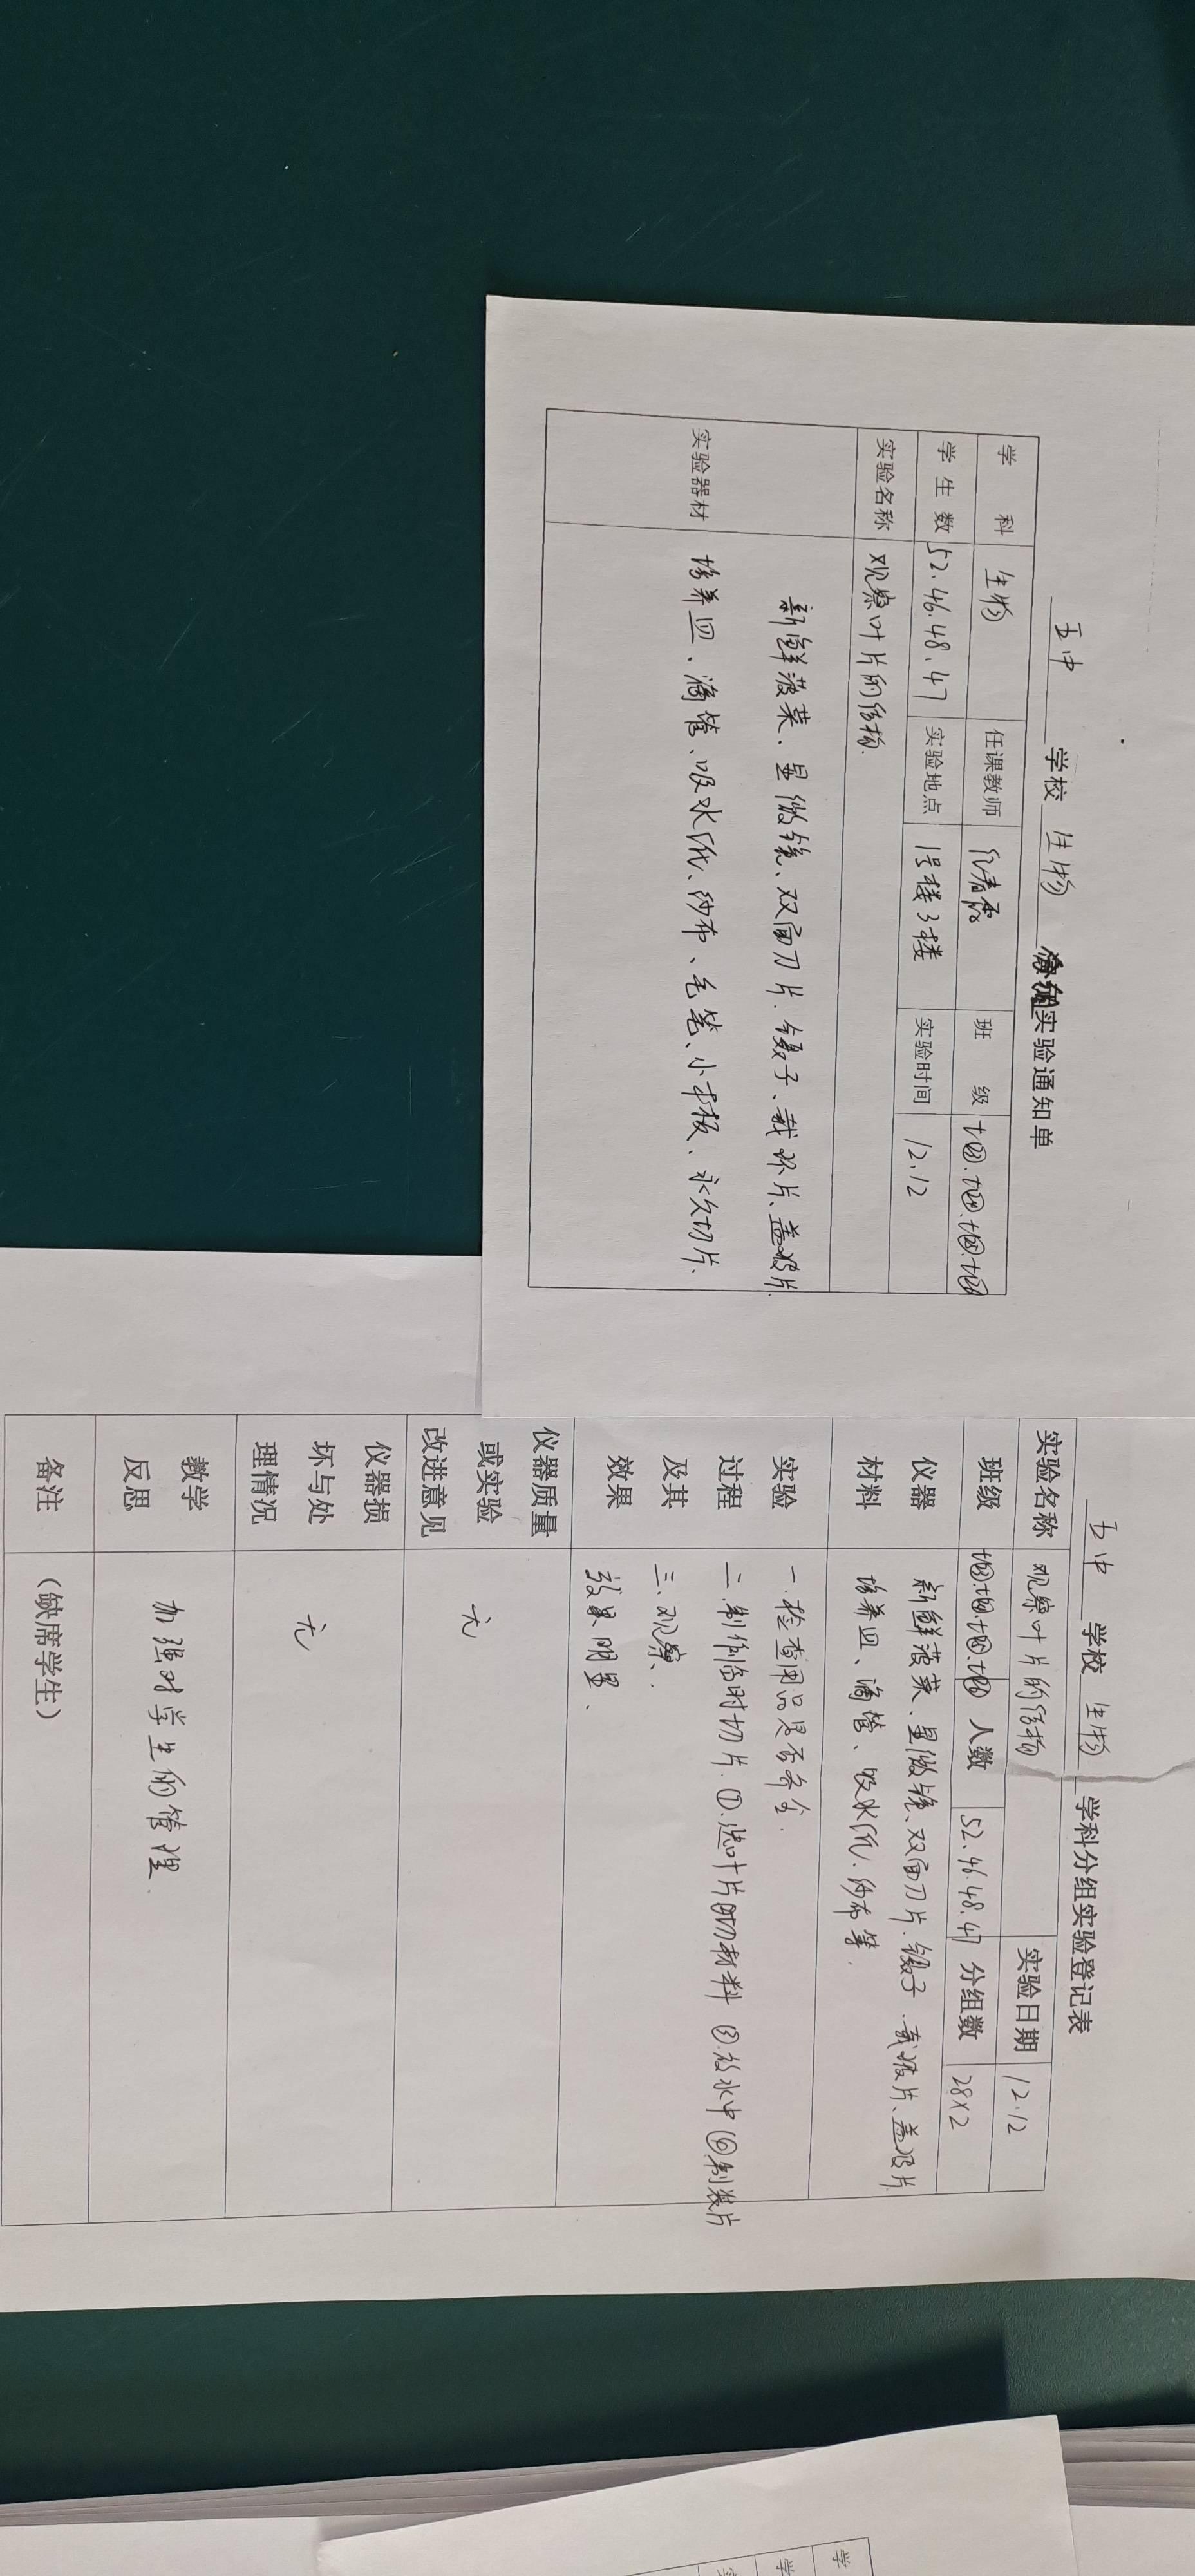 五中 学校 生物 实验通知单
学 科 生物 任课教师 班 级
学生数 52.46.48.47 实验地点 1号楼3楼 实验时间 12.12
实验名称 观察叶片的结构.
实验器材
新鲜菠菜、显微镜、双面刀片、镊子、载玻片、盖玻片.
培养皿、滴管、吸水纸、纱布、毛笔、小木板、永久切片.
五中 学校 生物 学科分组实验登记表
实验名称 观察叶片的结构 实验日期 12.12
班级 人数 52.46.48.47 分组数 28×2
仪器
材料
新鲜菠菜、显微镜、双面刀片、镊子、载玻片、盖玻片.
培养皿、滴管、吸水纸、纱布等.
实验
过程
及其
效果
一.检查用品是否齐全.
二.制作临时切片.①.选叶片 切材料 ③.放水中 ④.制装片
三.观察、
效果明显、
仪器质量
或实验
改进意见
无
仪器损
坏与处
理情况
无
教学
反思
加强对学生的管理.
备注 (缺席学生)
学
学
实